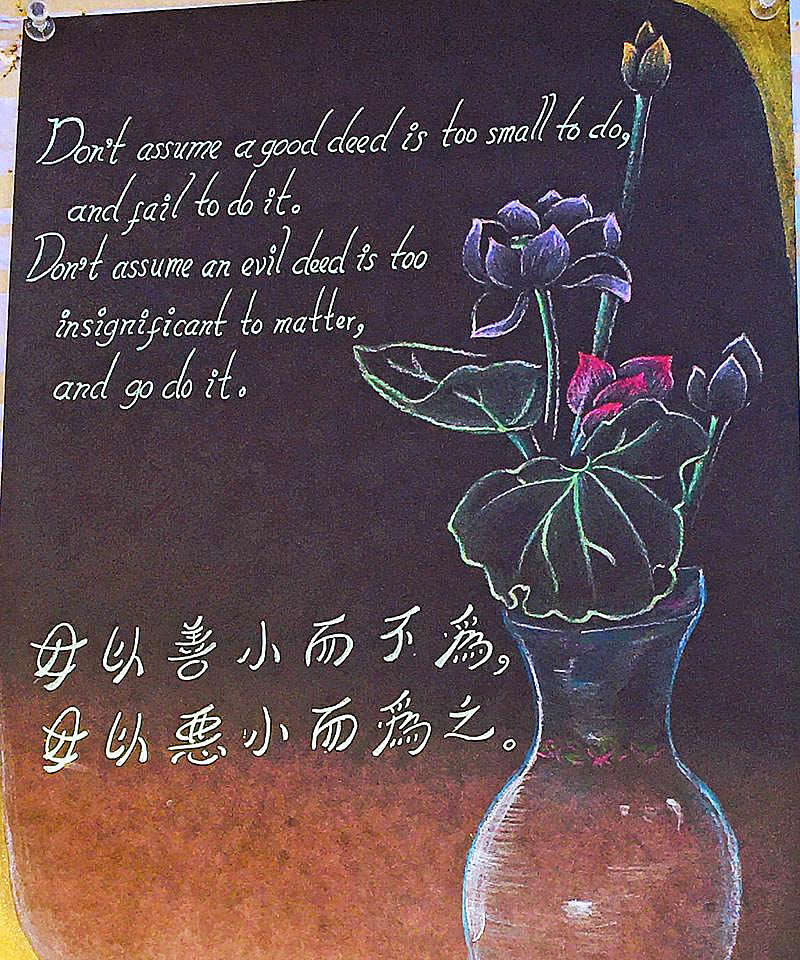 Don't assume a good deed is too small to do,
and fail to do it.
Don't assume an evil deed is too
insignificant to matter,
and go do it.
毋以善小而不為,
毋以惡小而為之。